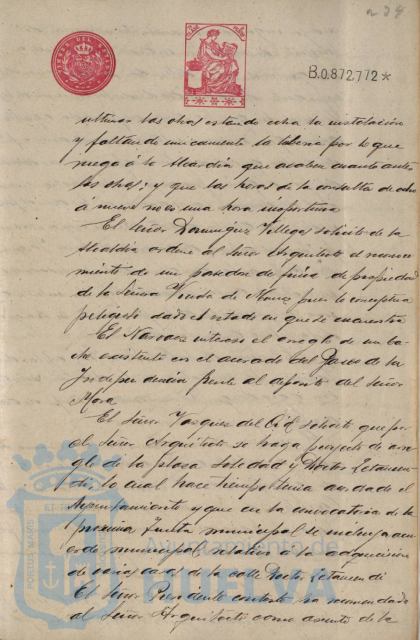 B.0.872.772*
ultimar las obras estando echa la instalación
y faltando unicamente la tuberia por lo que
ruego á la Alcaldia que acaben cuanto antes
las obras; y que las horas de la consulta de ocho
á nueve no es una hora inoportuna
El Señor Dominguez Villegas solicitó de la
Alcaldia ordene al Señor Arquitecto el reconoci
miento de un paredon de finca de propiedad
de la Señora Viuda de Nuñez pues lo conceptua
peligroso dado el estado en que se encuentra
El Narvaez intereso el arreglo de un ba-
che existente en el acerado del Paseo de la
Independencia frente al deposito del Señor
Mora
El Señor Vazquez del Cid solicita que por
el Señor Arquitecto se haga proyecto de arre
glo de la plaza Soledad y Doctor Letamen
di, lo cual hace tiempo tenia acordado el
Ayuntamiento y que en la convocatoria de la
proxima Junta municipal se incluya acu
erdo municipal, relativo á la adquisicion
de varias casas de la calle Doctor Letamendi
El Señor Presidente contesta ha recomendado
al Señor Arquitecto como asunto de la
Ayuntamiento de
HUELVA
PORTUS MARIS